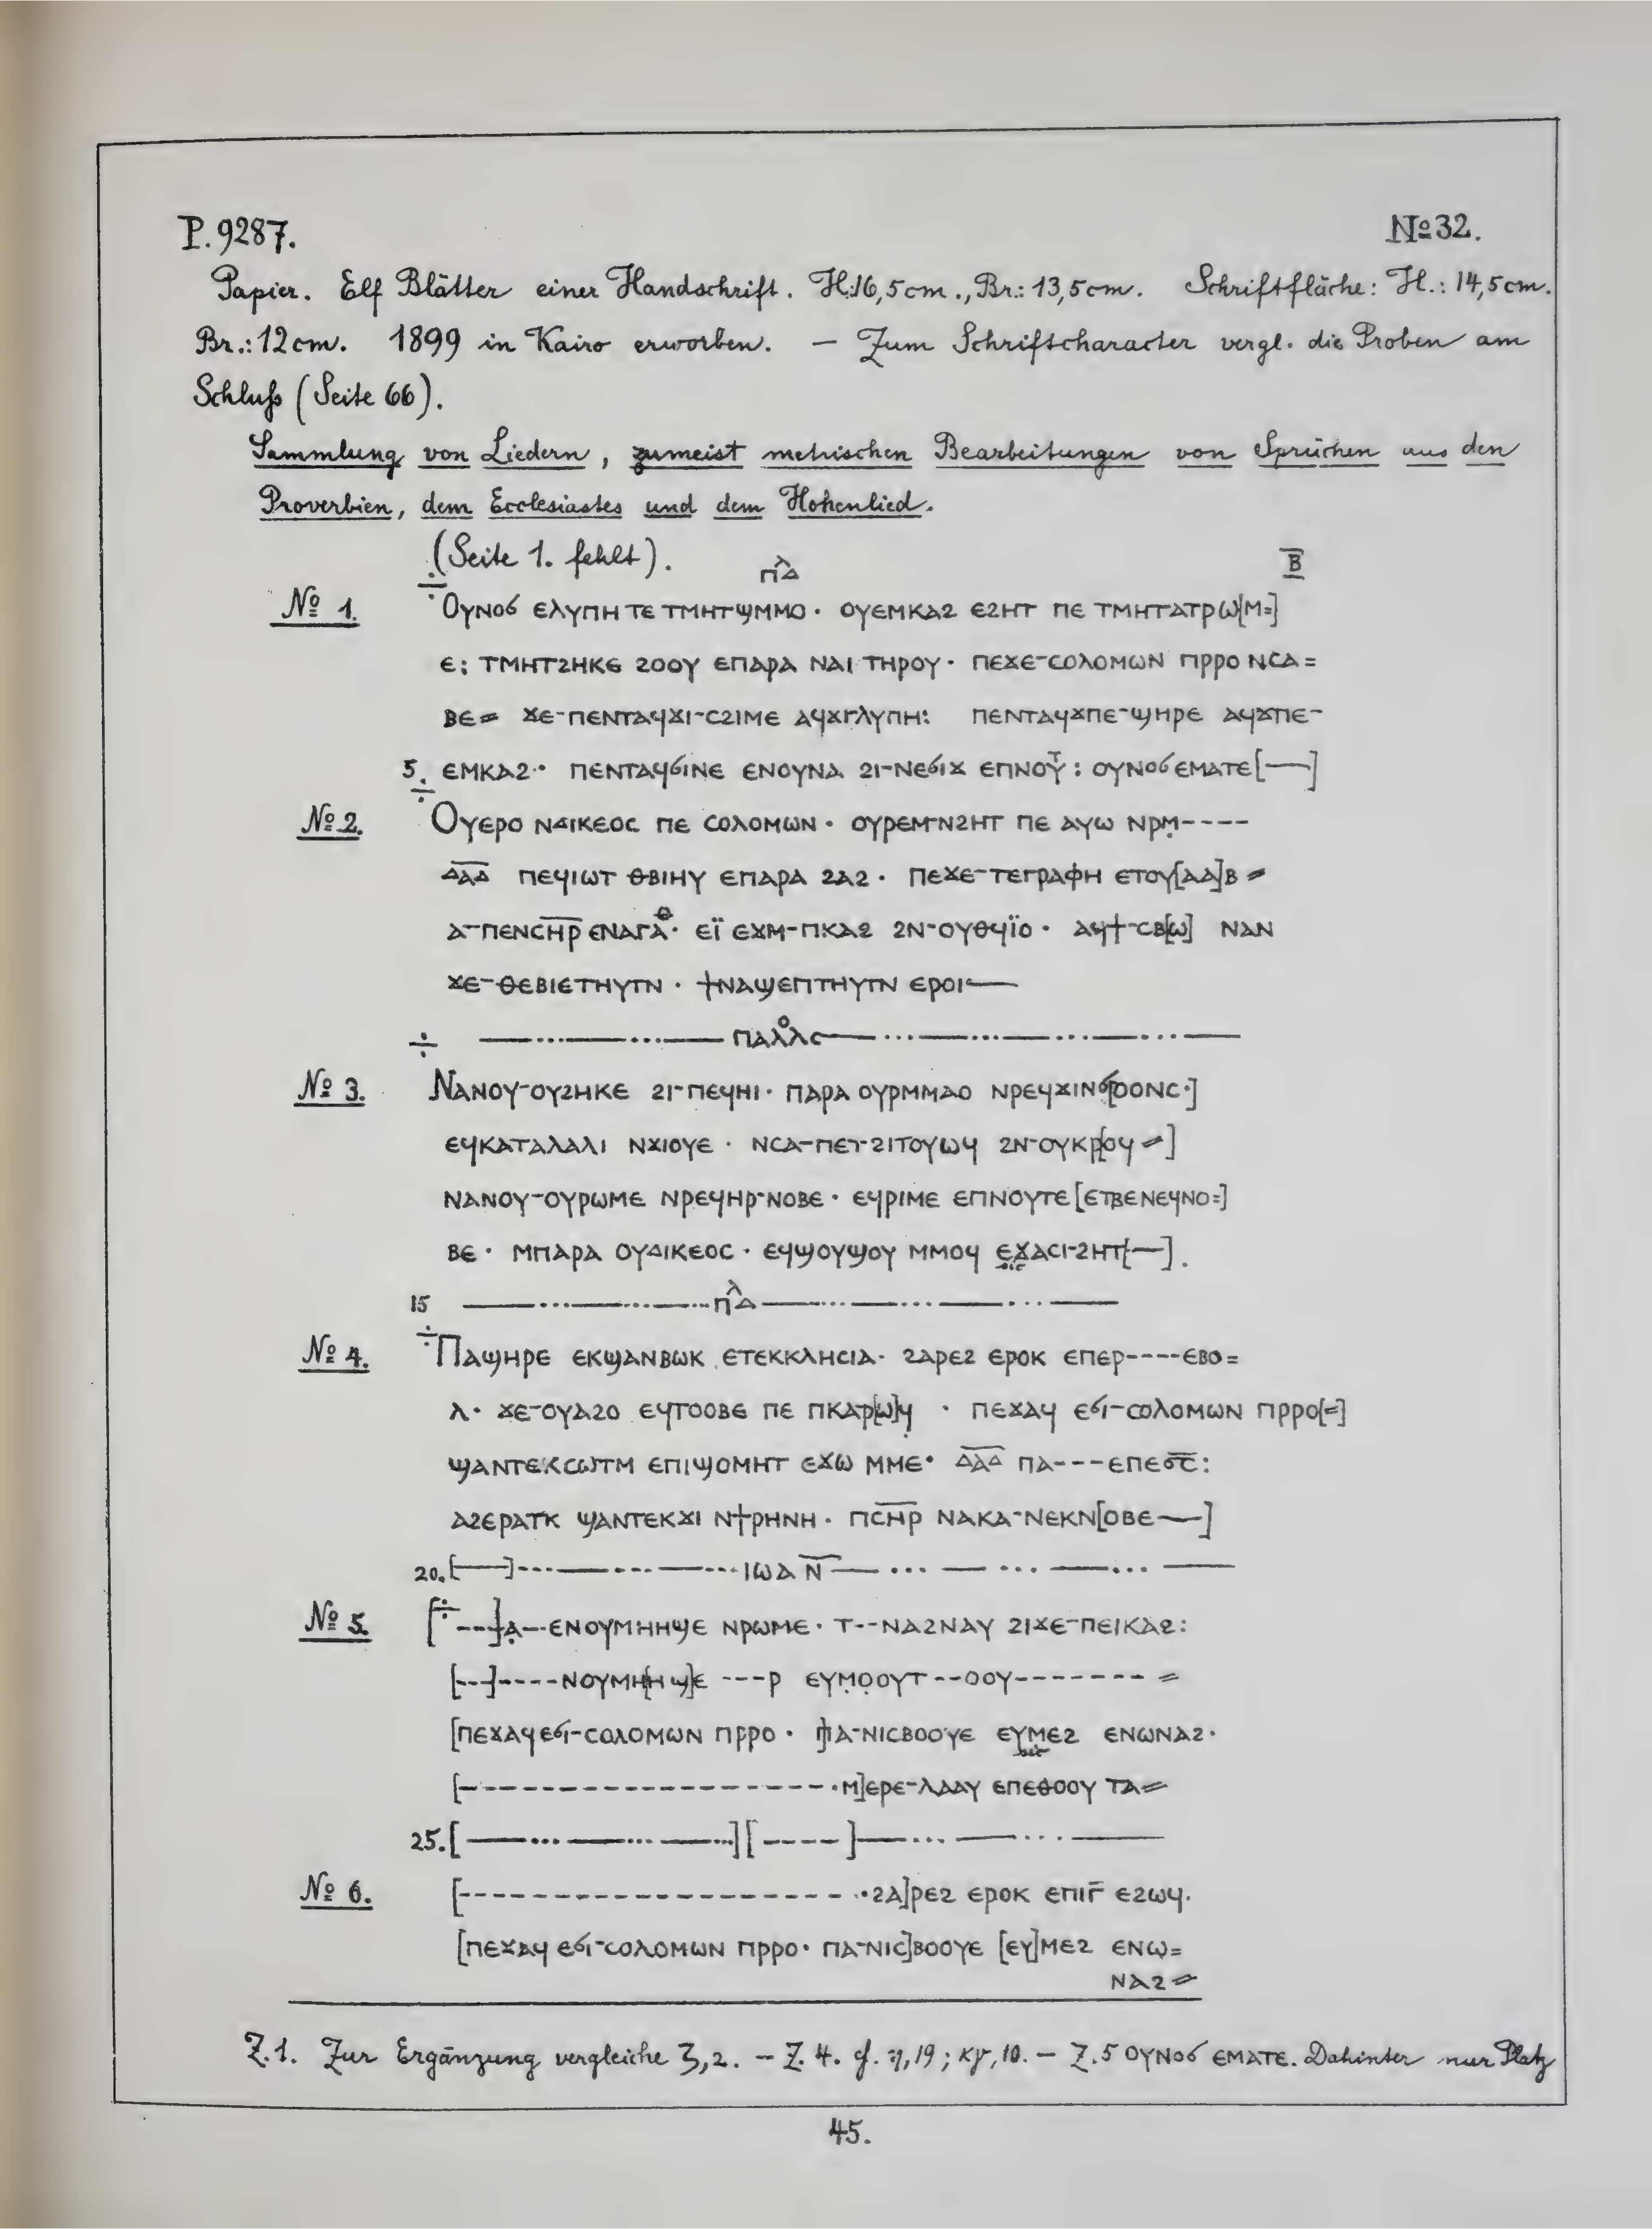 P. 9287. № 32.
Papier. Elf Blätter einer Handschrift. H.: 16,5 cm., Br.: 13,5 cm. Schriftfläche: H.: 14,5 cm.
Br.: 12 cm. 1899 in Kairo erworben. — Zum Schriftcharacter vergl. die Proben am
Schluſs (Seite 66).
Sammlung von Liedern, zumeist metrischen Bearbeitungen von Sprüchen aus den
Proverbien, dem Ecclesiastes und dem Hohenlied.
(Seite 1. fehlt). ⲡⲇⲗ ⲃ̅
№ 1. ÷ Ⲟⲩⲛⲟϭ ⲉⲗⲩⲡⲏ ⲧⲉ ⲧⲙⲏⲧϣⲙⲙⲟ · ⲟⲩⲉⲙⲕⲁϩ ⲉϩⲏⲧ ⲡⲉ ⲧⲙⲏⲧⲁⲧⲣⲱ[ⲙ=]
ⲉ: ⲧⲙⲏⲧϩⲏⲕⲉ ϩⲟⲟⲩ ⲉⲡⲁⲣⲁ ⲛⲁⲓ ⲧⲏⲣⲟⲩ · ⲡⲉϫⲉ-ⲥⲟⲗⲟⲙⲱⲛ ⲡⲣⲣⲟ ⲛⲥⲁ=
ⲃⲉ= ϫⲉ-ⲡⲉⲛⲧⲁϥϫⲓ-ⲥϩⲓⲙⲉ ⲁϥϫⲓⲗⲩⲡⲏ: ⲡⲉⲛⲧⲁϥϫⲡⲉ-ϣⲏⲣⲉ ⲁϥϫⲡⲉ-
5. ⲉⲙⲕⲁϩ · ⲡⲉⲛⲧⲁϥϭⲓⲛⲉ ⲉⲛⲟⲩⲛⲁ ϩⲓ-ⲛⲉϭⲓϫ ⲉⲡⲛⲟⲩⲧ : ⲟⲩⲛⲟϭ ⲉⲙⲁⲧⲉ[—]
№ 2. ÷ Ⲟⲩⲉⲣⲟ ⲛⲇⲓⲕⲉⲟⲥ ⲡⲉ ⲥⲟⲗⲟⲙⲱⲛ · ⲟⲩⲣⲉⲙ-ⲛϩⲏⲧ ⲡⲉ ⲁⲩⲱ ⲛⲣⲙ̣----
ⲇ̅ⲁ̅ⲇ̅ ⲡⲉϥⲓⲱⲧ ⲑⲃⲓⲏⲩ ⲉⲡⲁⲣⲁ ϩⲁϩ · ⲡⲉϫⲉ-ⲧⲉⲅⲣⲁⲫⲏ ⲉⲧⲟⲩ[ⲁⲁ]ⲃ =
ⲁ-ⲡⲉⲛⲥ̅ⲏ̅ⲣ̅ ⲉⲛⲁⲅⲁⲑ · ⲉⲓ̈ ⲉϫⲙ-ⲡⲕⲁϩ ϩⲛ-ⲟⲩⲑϥⲓ̈ⲟ · ⲁϥϯ-ⲥⲃ[ⲱ] ⲛⲁⲛ
ϫⲉ-ⲑⲉⲃⲓⲉⲧⲏⲩⲧⲛ · ϯⲛⲁϣⲉⲡⲧⲏⲩⲧⲛ ⲉⲣⲟⲓ—
÷ ——···——···—— ⲡⲁⲗⲗⲟⲥ ——···——···——···——
№ 3. Ⲛⲁⲛⲟⲩ-ⲟⲩϩⲏⲕⲉ ϩⲓ-ⲡⲉϥⲏⲓ · ⲡⲁⲣⲁ ⲟⲩⲣⲙⲙⲁⲟ ⲛⲣⲉϥϫⲓⲛϭ[ⲟⲟⲛⲥ·]
ⲉϥⲕⲁⲧⲁⲗⲁⲗⲓ ⲛϫⲓⲟⲩⲉ · ⲛⲥⲁ-ⲡⲉⲧ-ϩⲓⲧⲟⲩⲱϥ ϩⲛ-ⲟⲩⲕⲣ[ⲟϥ =]
ⲛⲁⲛⲟⲩ-ⲟⲩⲣⲱⲙⲉ ⲛⲣⲉϥⲏⲣ-ⲛⲟⲃⲉ · ⲉϥⲣⲓⲙⲉ ⲉⲡⲛⲟⲩⲧⲉ [ⲉⲧⲃⲉ ⲛⲉϥⲛⲟ=]
ⲃⲉ · ⲙⲡⲁⲣⲁ ⲟⲩⲇⲓⲕⲉⲟⲥ · ⲉϥϣⲟⲩϣⲟⲩ ⲙⲙⲟϥ ⲉϫⲁⲥⲓ-ϩⲏⲧ[—].
sic
15 ——···——···—— ⲡⲇⲗ ——···——···——···——
№ 4. ÷ Ⲡⲁϣⲏⲣⲉ ⲉⲕϣⲁⲛⲃⲱⲕ ⲉⲧⲉⲕⲕⲗⲏⲥⲓⲁ · ϩⲁⲣⲉϩ ⲉⲣⲟⲕ ⲉⲡⲉⲣ----ⲉⲃⲟ=
ⲗ · ϫⲉ-ⲟⲩⲁϩⲟ ⲉϥⲧⲟⲟⲃⲉ ⲡⲉ ⲡⲕⲁⲣ[ⲱ]ϥ · ⲡⲉϫⲁϥ ⲉϭⲓ-ⲥⲟⲗⲟⲙⲱⲛ ⲡⲣⲣⲟ[=]
ϣⲁⲛⲧⲉⲕⲥⲱⲧⲙ ⲉⲡⲓϣⲟⲙⲏⲧ ⲉϫⲱ ⲙⲙⲉ · ⲇ̅ⲁ̅ⲇ̅ ⲡⲁ---ⲉⲡⲉϭ̅ⲥ̅:
ⲁϩⲉⲣⲁⲧⲕ ϣⲁⲛⲧⲉⲕϫⲓ ⲛϯⲣⲏⲛⲏ · ⲡⲥ̅ⲏ̅ⲣ̅ ⲛⲁⲕⲁ-ⲛⲉⲕⲛ[ⲟⲃⲉ—]
20. [——]···——···——··· ⲓⲱⲁⲛ̅ ——···——···——···——
№ 5. [÷ ---]ⲁ̣--ⲉⲛⲟⲩⲙⲏⲏϣⲉ ⲛⲣⲱⲙⲉ · ⲧ--ⲛⲁϩⲛⲁⲩ ϩⲓϫⲉ-ⲡⲉⲓⲕⲁϩ:
[--]----ⲛⲟⲩⲙⲏ[ⲏϣ]ⲉ ---ⲣ ⲉⲩⲙ̣ⲟ̣ⲟⲩⲧ--ⲟⲟⲩ------- =
[ⲡⲉϫⲁϥ ⲉϭⲓ-ⲥⲟⲗⲟⲙⲱⲛ ⲡⲣⲣⲟ · ⲡ]ⲁ-ⲛⲓⲥⲃⲟⲟⲩⲉ ⲉⲩⲙⲉϩ ⲉⲛⲱⲛⲁϩ·
sic
[-------------------·ⲙ]ⲉⲣⲉ-ⲗⲁⲁⲩ ⲉⲡⲉⲑⲟⲟⲩ ⲧⲁ=
25. [——···——···——···][-----]——···——···——
№ 6. [--------------------·ϩⲁ]ⲣⲉϩ ⲉⲣⲟⲕ ⲉⲡⲓⲅ̅ ⲉϩⲱϥ.
[ⲡⲉϫⲁϥ ⲉϭⲓ-ⲥⲟⲗⲟⲙⲱⲛ ⲡⲣⲣⲟ · ⲡⲁ-ⲛⲓⲥ]ⲃⲟⲟⲩⲉ [ⲉⲩ]ⲙⲉϩ ⲉⲛⲱ=
ⲛⲁϩ=
Z. 1. Zur Ergänzung vergleiche 3,2. — Z. 4. cf. η, 19; κγ, 10. — Z. 5 ⲟⲩⲛⲟϭ ⲉⲙⲁⲧⲉ. Dahinter nur Platz
45.